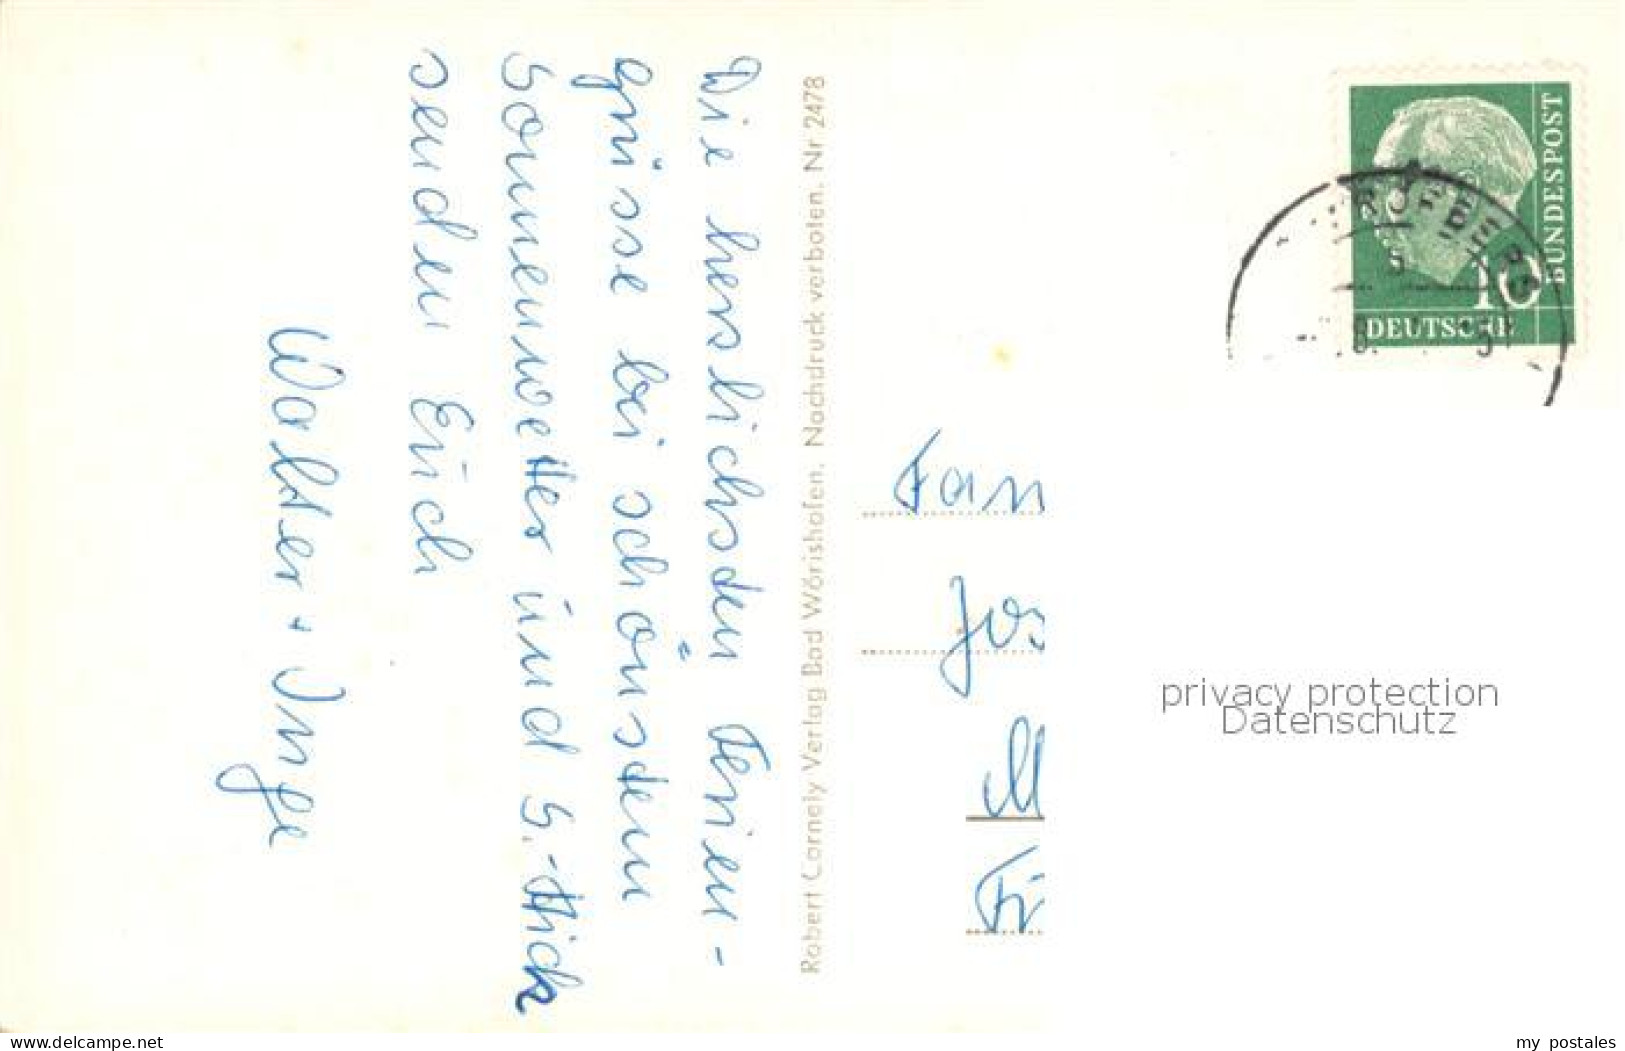 Die herzlichsten Ferien-
grüsse bei schönstem
Sonnenwetter und
senden Euch
Walter + Inge
Robert Cornely Verlag Bad Wörishofen. Nachdruck verboten. Nr 2478
10
BUNDESPOST
DEUTSCHE
Fam
Jos
M
privacy protection
Datenschutz
www.delcampe.net
my_postales